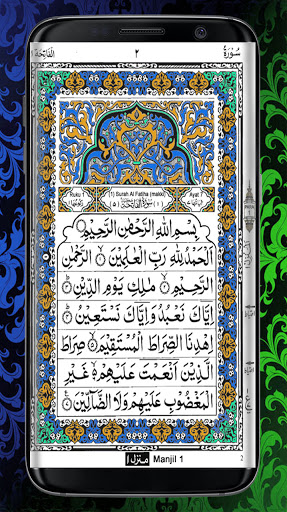 سُوْرَةُ ٢ اَلْفَاتِحَة ١
Ruku (1) Surah Al Fatiha (makki) Ayat
بِسْمِ اللّٰهِ الرَّحْمٰنِ الرَّحِيْمِ
اَلْحَمْدُ لِلّٰهِ رَبِّ الْعٰلَمِيْنَ ۙ الرَّحْمٰنِ
الرَّحِيْمِ ۙ مٰلِكِ يَوْمِ الدِّيْنِ ؕ
اِيَّاكَ نَعْبُدُ وَاِيَّاكَ نَسْتَعِيْنُ ؕ
اِهْدِنَا الصِّرَاطَ الْمُسْتَقِيْمَ ۙ صِرَاطَ
الَّذِيْنَ اَنْعَمْتَ عَلَيْهِمْ ۙ غَيْرِ
الْمَغْضُوْبِ عَلَيْهِمْ وَلَا الضَّآلِّيْنَ
منزل ١ Manjil 1
2